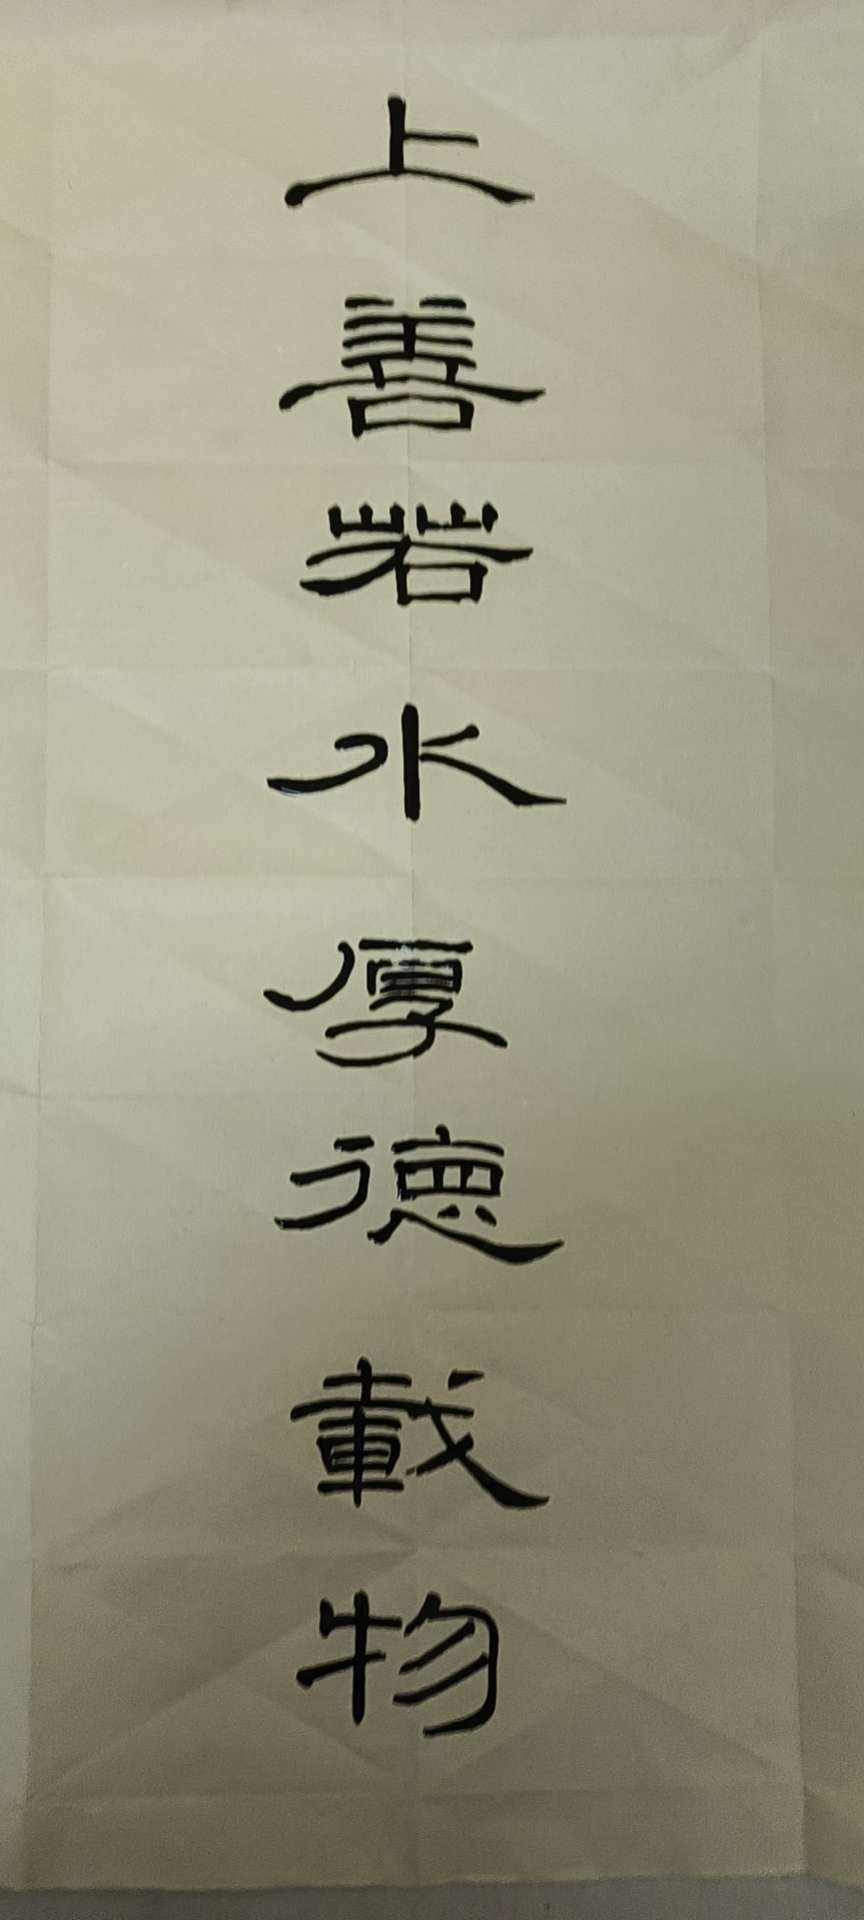 上善若水厚德載物